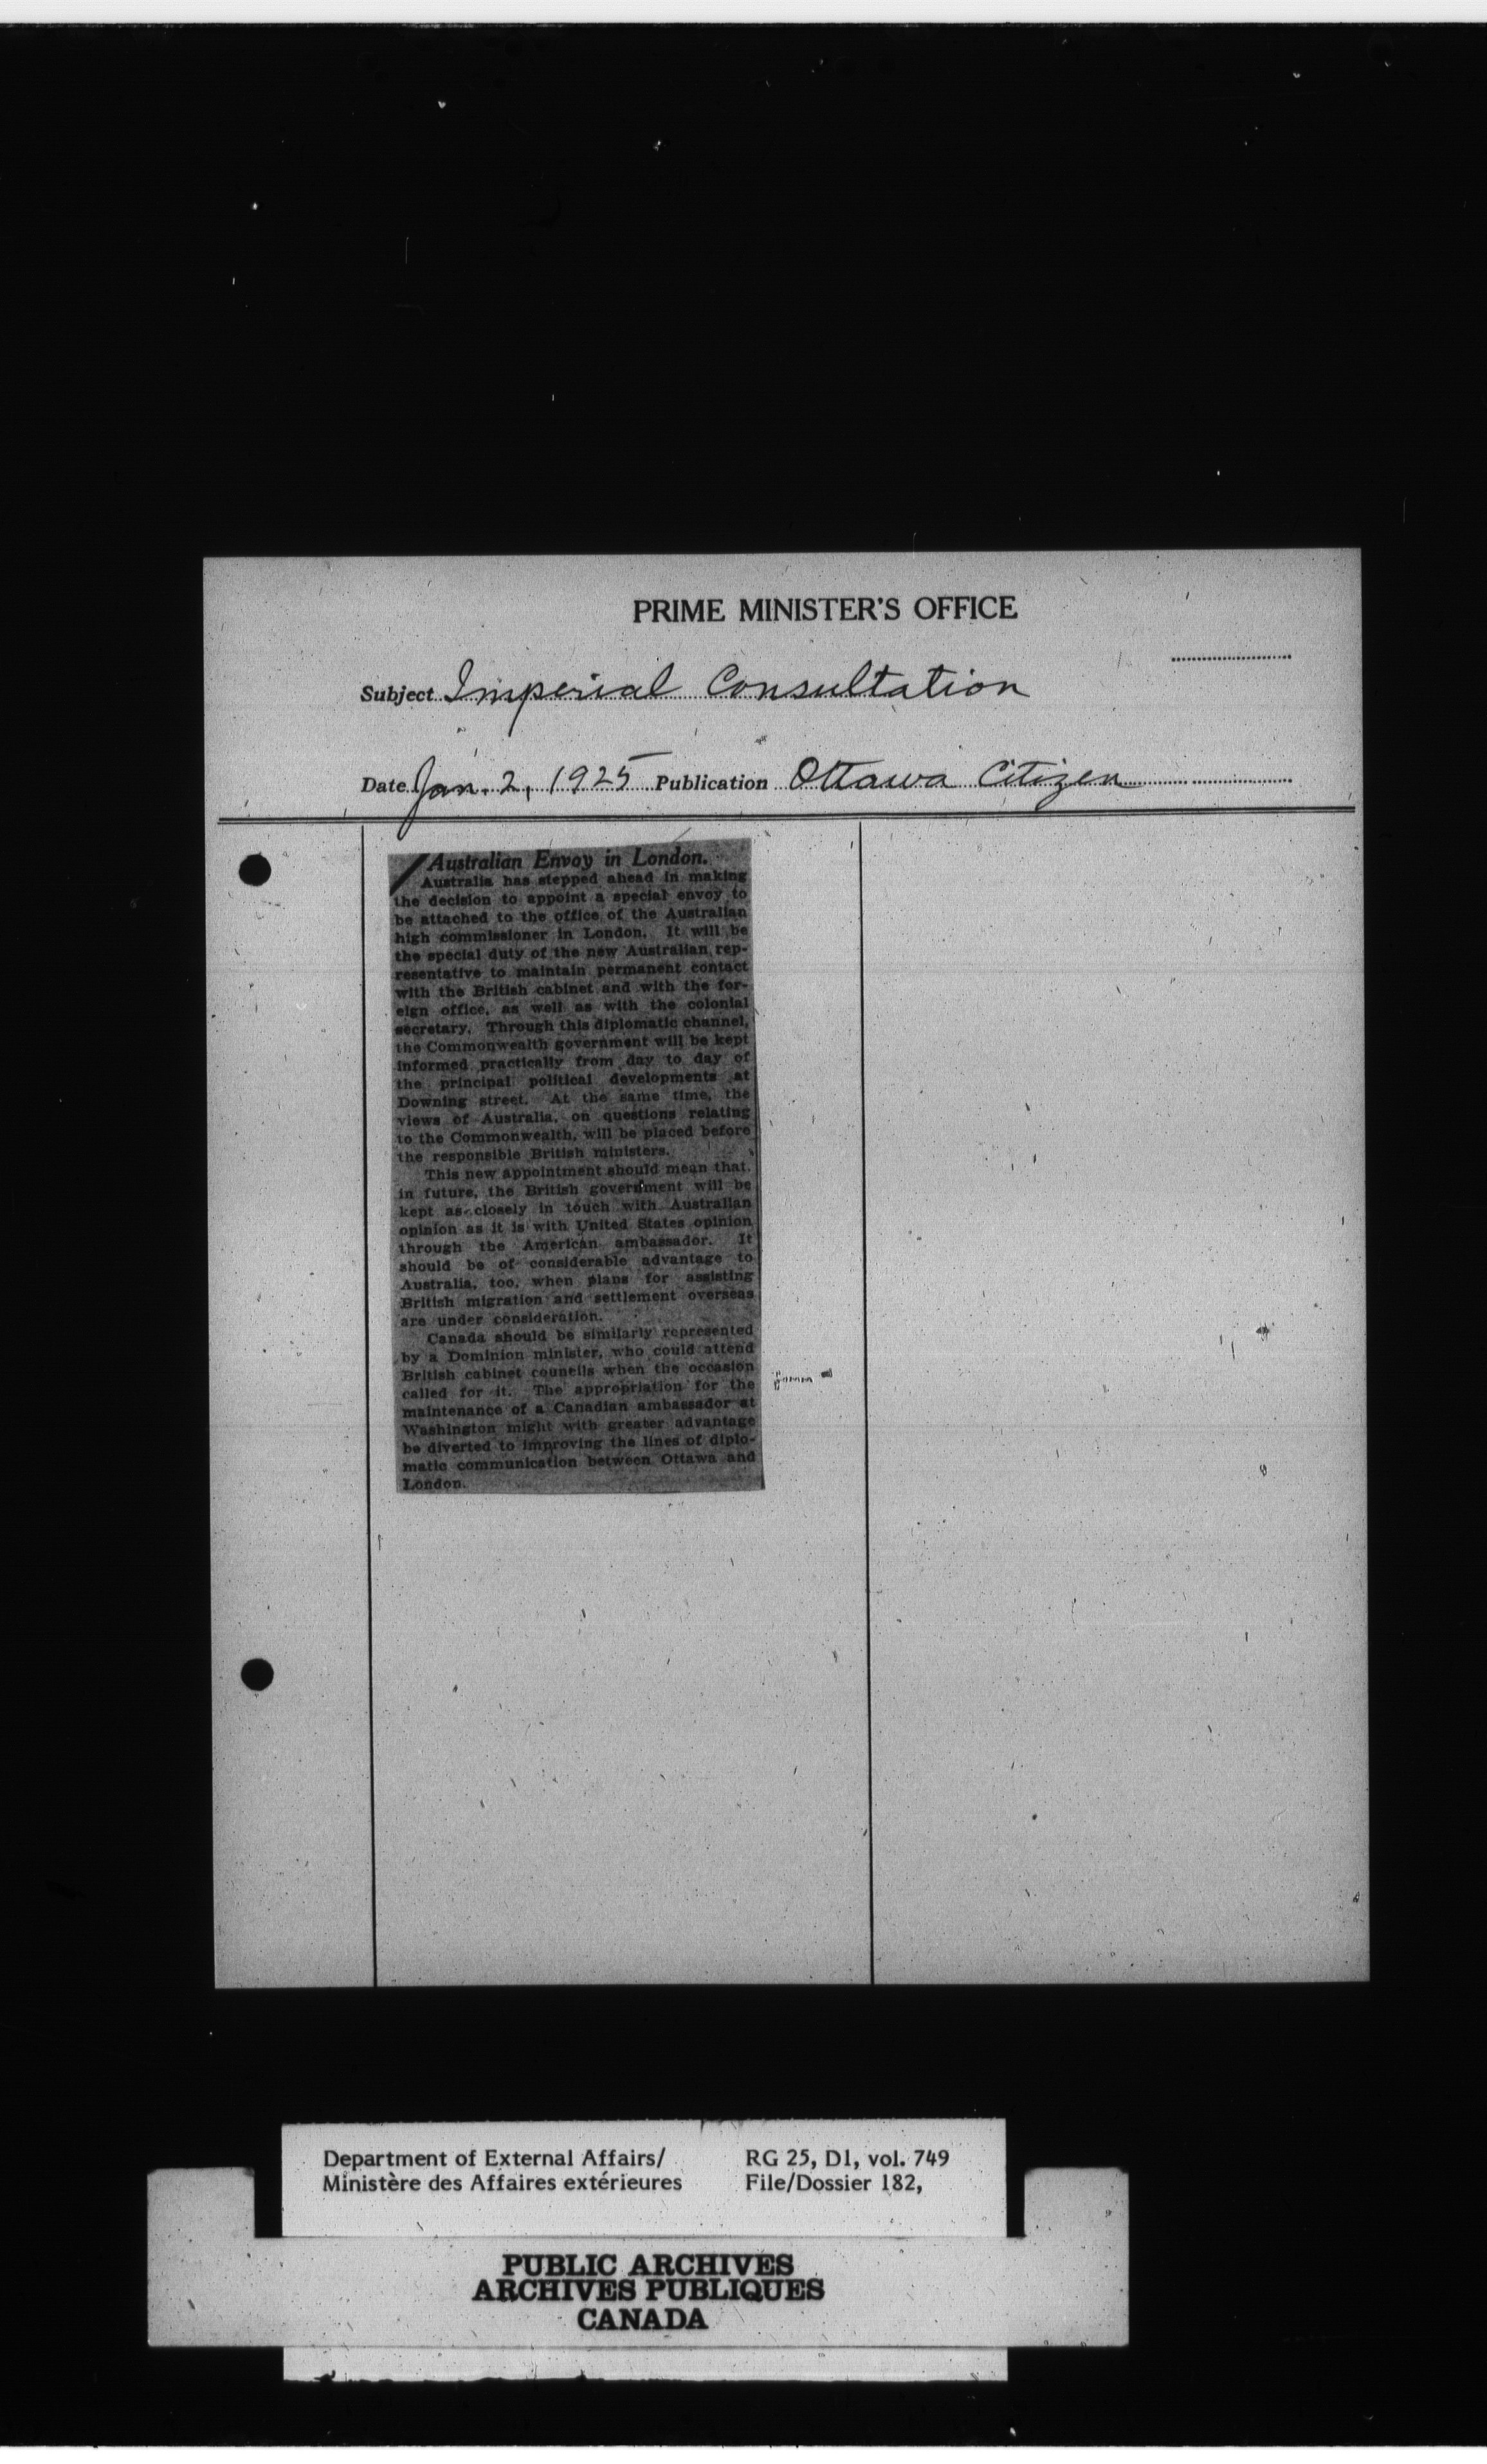 PRIME MINISTER'S OFFICE
Subject Imperial Consultation
Date Jan. 2, 1925 Publication Ottawa Citizen
Australian Envoy in London.
Australia has stepped ahead in making
the decision to appoint a special envoy to
be attached to the office of the Australian
high commissioner in London. It will be
the special duty of the new Australian rep-
resentative to maintain permanent contact
with the British cabinet and with the for-
eign office, as well as with the colonial
secretary. Through this diplomatic channel,
the Commonwealth government will be kept
informed practically from day to day of
the principal political developments at
Downing street. At the same time, the
views of Australia, on questions relating
to the Commonwealth, will be placed before
the responsible British ministers.
This new appointment should mean that,
in future, the British government will be
kept as closely in touch with Australian
opinion as it is with United States opinion
through the American ambassador. It
should be of considerable advantage to
Australia, too, when plans for assisting
British migration and settlement overseas
are under consideration.
Canada should be similarly represented
by a Dominion minister, who could attend
British cabinet councils when the occasion
called for it. The appropriation for the
maintenance of a Canadian ambassador at
Washington might with greater advantage
be diverted to improving the lines of diplo-
matic communication between Ottawa and
London.
Department of External Affairs/
Ministère des Affaires extérieures
RG 25, D1, vol. 749
File/Dossier 182,
PUBLIC ARCHIVES
ARCHIVES PUBLIQUES
CANADA